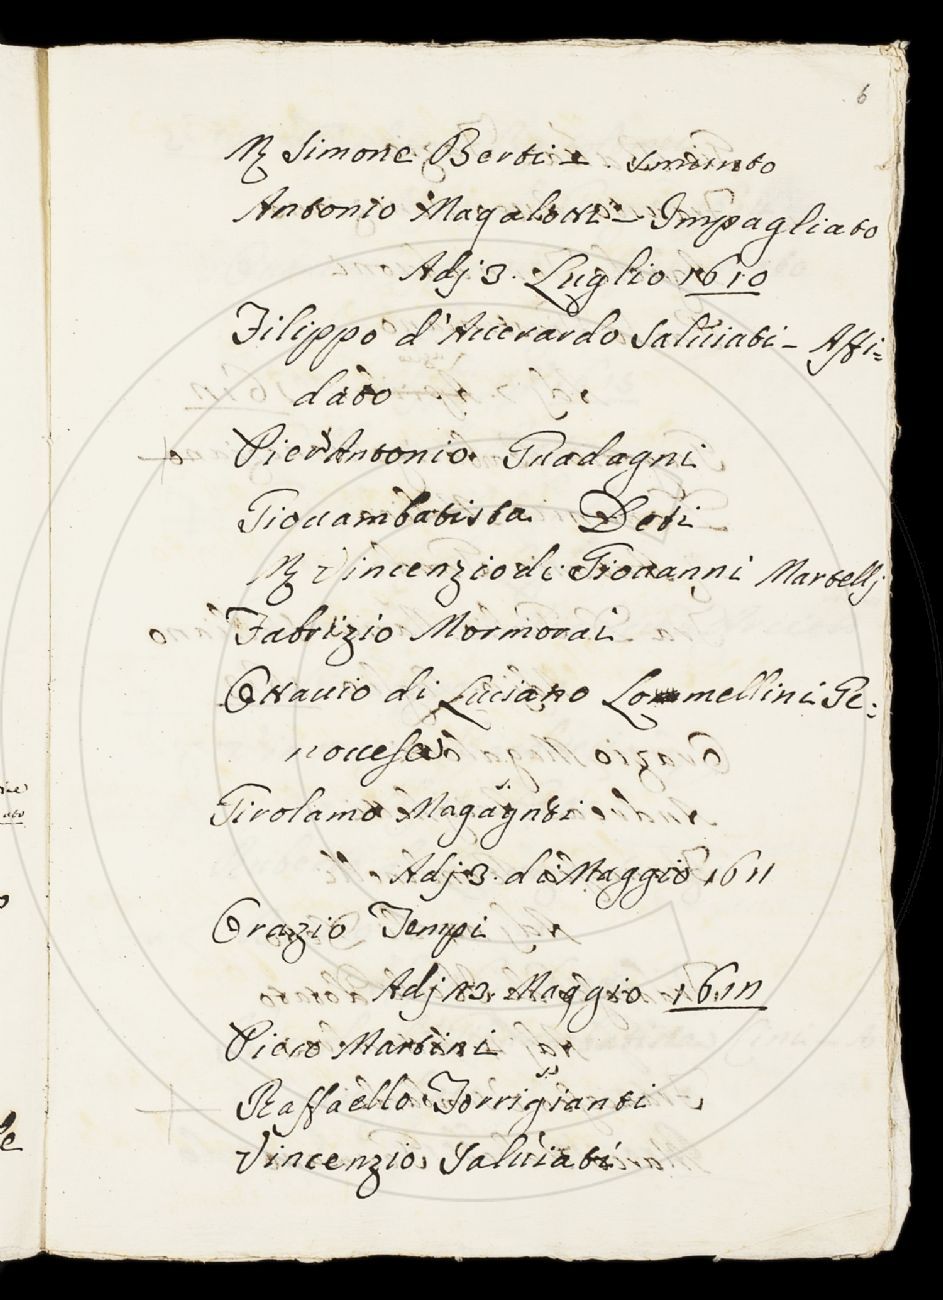 6
M Simone Berti – Smunto
Antonio Magalotti – Impagliato
Adj 3. Luglio 1610
Filippo d'Auerardo Saluiati – Affi=
dato
Pier Antonio Guadagni
Giouambatista Deti
M Vincenzio di Giouanni Martellj
Fabrizio Mormorai
Ottauio di Luciano Lommellini Ge=
nouese
Girolamo
Adj 3. di Maggio 1611
Orazio Tempi
Adj 13. Maggio 1611
Piero Martini
Raffaello Torrigianti
Vincenzio Saluiati